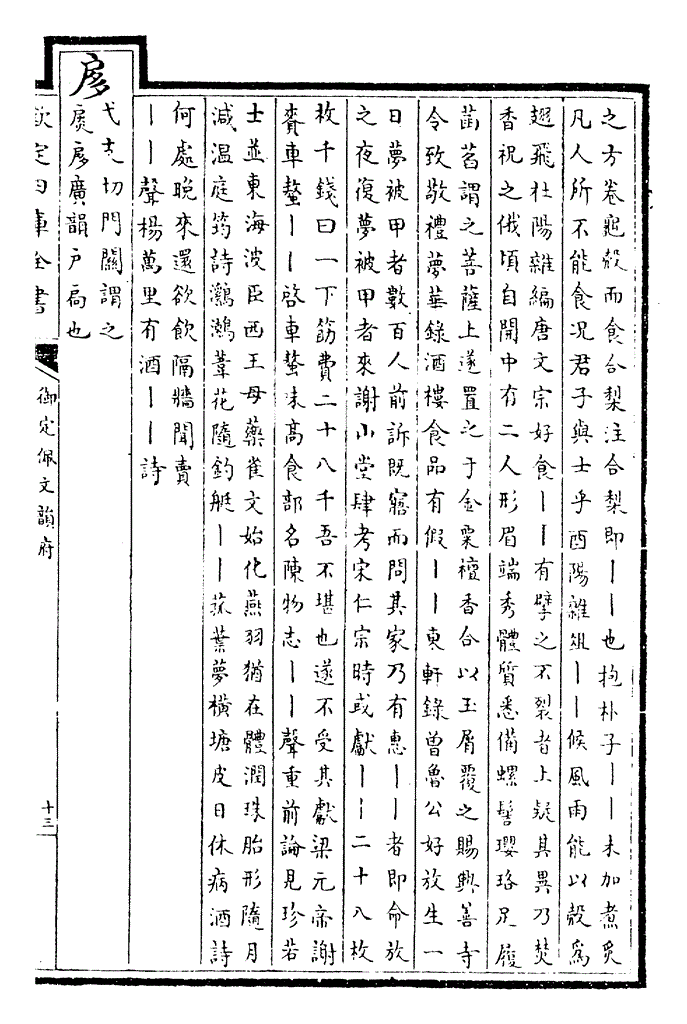 之方卷龜殻而食合梨注合梨即――也抱朴子――未加煮炙
凡人所不能食况君子與士乎酉陽雜俎――候風雨能以殻為
翅飛杜陽雜編唐文宗好食――有擘之不裂者上疑其異乃焚
香祝之俄頃自開中有二人形眉端秀體質悉備螺髻瓔珞足履
菡萏謂之菩薩上遂置之于金粟檀香合以玉屑覆之賜興善寺
令致敬禮夢華錄酒樓食品有假――東軒錄曾魯公好放生一
日夢被甲者數百人前訴既寤而問其家乃有惠――者即命放
之夜復夢被甲者來謝山堂肆考宋仁宗時或獻――二十八枚
枚千錢曰一下筯費二十八千吾不堪也遂不受其獻梁元帝謝
賚車螯――啓車螯味高食部名陳物志――聲重前論見珍若
士並東海波臣西王母藥雀文始化燕羽猶在體潤珠胎形隨月
減溫庭筠詩鸂鶒葦花隨釣艇――菰葉夢橫塘皮日休病酒詩
何處晚來還欲飲隔牆聞賣
――聲楊萬里有酒――詩
扅
弋支切門關謂之
扊扅廣韻戶扃也
欽定四庫全書
御定佩文韻府
十三